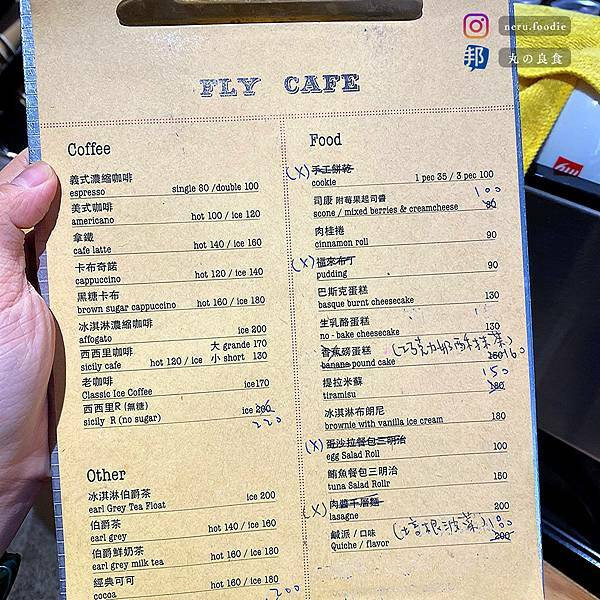 neru.foodie
邦 丸の良食
FLY CAFE
Coffee
義式濃縮咖啡
espresso single 80 /double 100
美式咖啡
americano hot 100 / ice 120
拿鐵
cafe latte hot 140 / ice 160
卡布奇諾
cappuccino hot 120 / ice 140
黑糖卡布
brown sugar cappuccino hot 160 / ice 180
冰淇淋濃縮咖啡
affogato ice 200
西西里咖啡 大 grande 170
sicily cafe hot 120 / ice 小 short 130
老咖啡
Classic Ice Coffee ice170
西西里R (無糖)
sicily R (no sugar) ice 200
220
Other
冰淇淋伯爵茶
earl Grey Tea Float ice 200
伯爵茶
earl grey hot 140 / ice 160
伯爵鮮奶茶
earl grey milk tea hot 160 / ice 180
經典可可
cocoa hot 160 / ice 180
200
Food
(X) 手工餅乾
cookie 1 pec 35 / 3 pec 100
司康 附莓果起司醬 100
scone / mixed berries & creamcheese 90
肉桂捲
cinnamon roll 90
(X) 福來布丁
pudding 90
巴斯克蛋糕
basque burnt cheesecake 130
生乳酪蛋糕
no - bake cheesecake 130
香蕉磅蛋糕
banana pound cake 150 160
提拉米蘇 150
tiramisu 180
冰淇淋布朗尼
brownie with vanilla ice cream 180
(X) 蛋沙拉餐包三明治
egg Salad Roll 100
鮪魚餐包三明治
tuna Salad Rollr 150
(X) 肉醬千層麵
lasagne 200
鹹派 / 口味 (培根菠菜) 180
Quiche / flavor 200